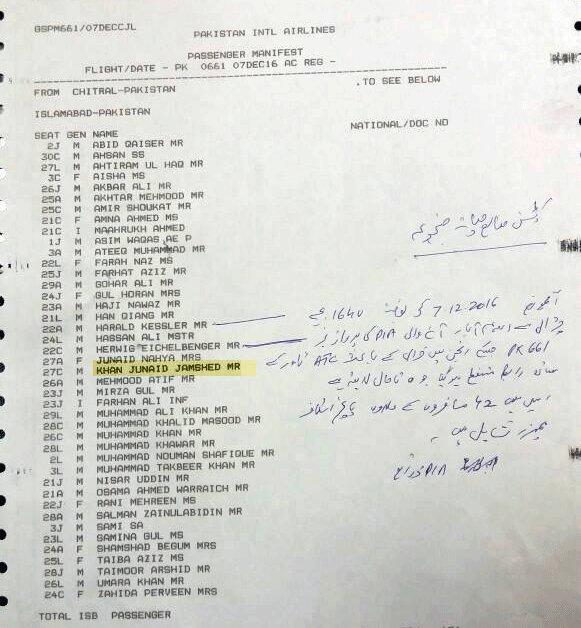 GSPM661/07DECCJL
PAKISTAN INTL AIRLINES
PASSENGER MANIFEST
FLIGHT/DATE - PK 0661 07DEC16 AC REG -
FROM CHITRAL-PAKISTAN .TO SEE BELOW
ISLAMABAD-PAKISTAN
NATIONAL/DOC NO
SEAT GEN NAME
2J M ABID QAISER MR
30C M AHSAN SS
27L M AHTIRAM UL HAQ MR
3C F AISHA MS
26J M AKBAR ALI MR
25A M AKHTAR MEHMOOD MR
25C M AMIR SHOUKAT MR
21C F AMNA AHMED MS
21C I MAAHRUKH AHMED
1J M ASIM WAQAS AE P
3A M ATEEQ MUHAMMAD MR
22L F FARAH NAZ MS
25J M FARHAT AZIZ MR
29A M GOHAR ALI MR
24J F GUL HORAN MRS
23A M HAJI NAWAZ MR
21L M HAN QIANG MR
22A M HARALD KESSLER MR
24L M HASSAN ALI MSTR
22C M HERWIG EICHELBENGER MR
27A F JUNAID NAHYA MRS
27C M KHAN JUNAID JAMSHED MR
26A M MEHMOOD ATIF MR
23J M MIRZA GUL MR
23J I FARHAN ALI INF
29L M MUHAMMAD ALI KHAN MR
28C M MUHAMMAD KHALID MASOOD MR
26C M MUHAMMAD KHAN MR
28L M MUHAMMAD KHAWAR MR
2L M MUHAMMAD NOUMAN SHAFIQUE MR
3L M MUHAMMAD TAKBEER KHAN MR
21J M NISAR UDDIN MR
21A M OSAMA AHMED WARRAICH MR
22J F RANI MEHREEN MS
28A M SALMAN ZAINULABIDIN MR
3J M SAMI SA
23L M SAMINA GUL MS
24A F SHAMSHAD BEGUM MRS
25L F TAIBA AZIZ MS
28J M TAIMOOR ARSHID MR
26L M UMARA KHAN MR
24C F ZAHIDA PERVEEN MRS
TOTAL ISB PASSENGER
7-12-2016 1640
PIA کی پرواز
PK 661 ATC
42 مسافروں کے علاوہ پانچ
PIA